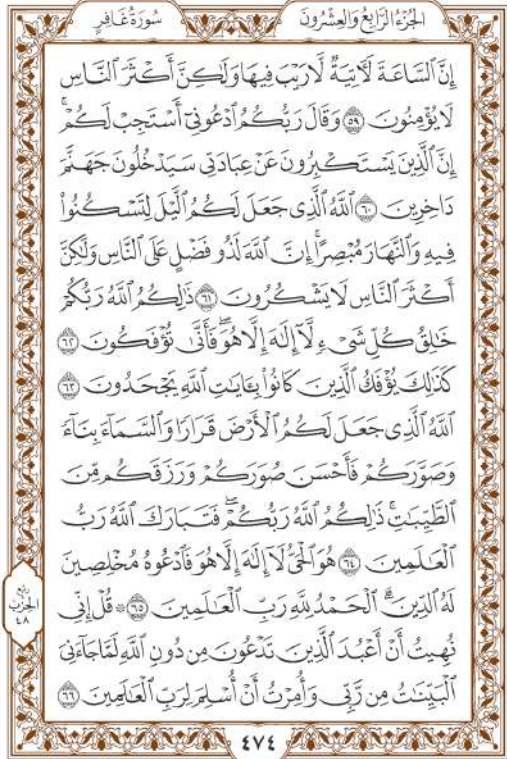 الجُزْءُ الرَّابِعُ وَالعِشْرُونَ
سُورَةُ غَافِرٍ
إِنَّ ٱلسَّاعَةَ لَأٓتِيَةٌ لَّا رَيۡبَ فِيهَا وَلَٰكِنَّ أَكۡثَرَ ٱلنَّاسِ
لَا يُؤۡمِنُونَ ٥٩ وَقَالَ رَبُّكُمُ ٱدۡعُونِيٓ أَسۡتَجِبۡ لَكُمۡۚ
إِنَّ ٱلَّذِينَ يَسۡتَكۡبِرُونَ عَنۡ عِبَادَتِي سَيَدۡخُلُونَ جَهَنَّمَ
دَاخِرِينَ ٦٠ ٱللَّهُ ٱلَّذِي جَعَلَ لَكُمُ ٱلَّيۡلَ لِتَسۡكُنُواْ
فِيهِ وَٱلنَّهَارَ مُبۡصِرًاۚ إِنَّ ٱللَّهَ لَذُو فَضۡلٍ عَلَى ٱلنَّاسِ وَلَٰكِنَّ
أَكۡثَرَ ٱلنَّاسِ لَا يَشۡكُرُونَ ٦١ ذَٰلِكُمُ ٱللَّهُ رَبُّكُمۡ
خَٰلِقُ كُلِّ شَيۡءٖ لَّآ إِلَٰهَ إِلَّا هُوَۖ فَأَنَّىٰ تُؤۡفَكُونَ ٦٢
كَذَٰلِكَ يُؤۡفَكُ ٱلَّذِينَ كَانُواْ بِـَٔايَٰتِ ٱللَّهِ يَجۡحَدُونَ ٦٣
ٱللَّهُ ٱلَّذِي جَعَلَ لَكُمُ ٱلۡأَرۡضَ قَرَارٗا وَٱلسَّمَآءَ بِنَآءٗ
وَصَوَّرَكُمۡ فَأَحۡسَنَ صُوَرَكُمۡ وَرَزَقَكُم مِّنَ
ٱلطَّيِّبَٰتِۚ ذَٰلِكُمُ ٱللَّهُ رَبُّكُمۡۖ فَتَبَارَكَ ٱللَّهُ رَبُّ
ٱلۡعَٰلَمِينَ ٦٤ هُوَ ٱلۡحَيُّ لَآ إِلَٰهَ إِلَّا هُوَ فَٱدۡعُوهُ مُخۡلِصِينَ
لَهُ ٱلدِّينَۗ ٱلۡحَمۡدُ لِلَّهِ رَبِّ ٱلۡعَٰلَمِينَ ٦٥ ۞ قُلۡ إِنِّي
نُهِيتُ أَنۡ أَعۡبُدَ ٱلَّذِينَ تَدۡعُونَ مِن دُونِ ٱللَّهِ لَمَّا جَآءَنِيَ
ٱلۡبَيِّنَٰتُ مِن رَّبِّي وَأُمِرۡتُ أَنۡ أُسۡلِمَ لِرَبِّ ٱلۡعَٰلَمِينَ ٦٦
الحِزْبُ
٤٨
٤٧٤